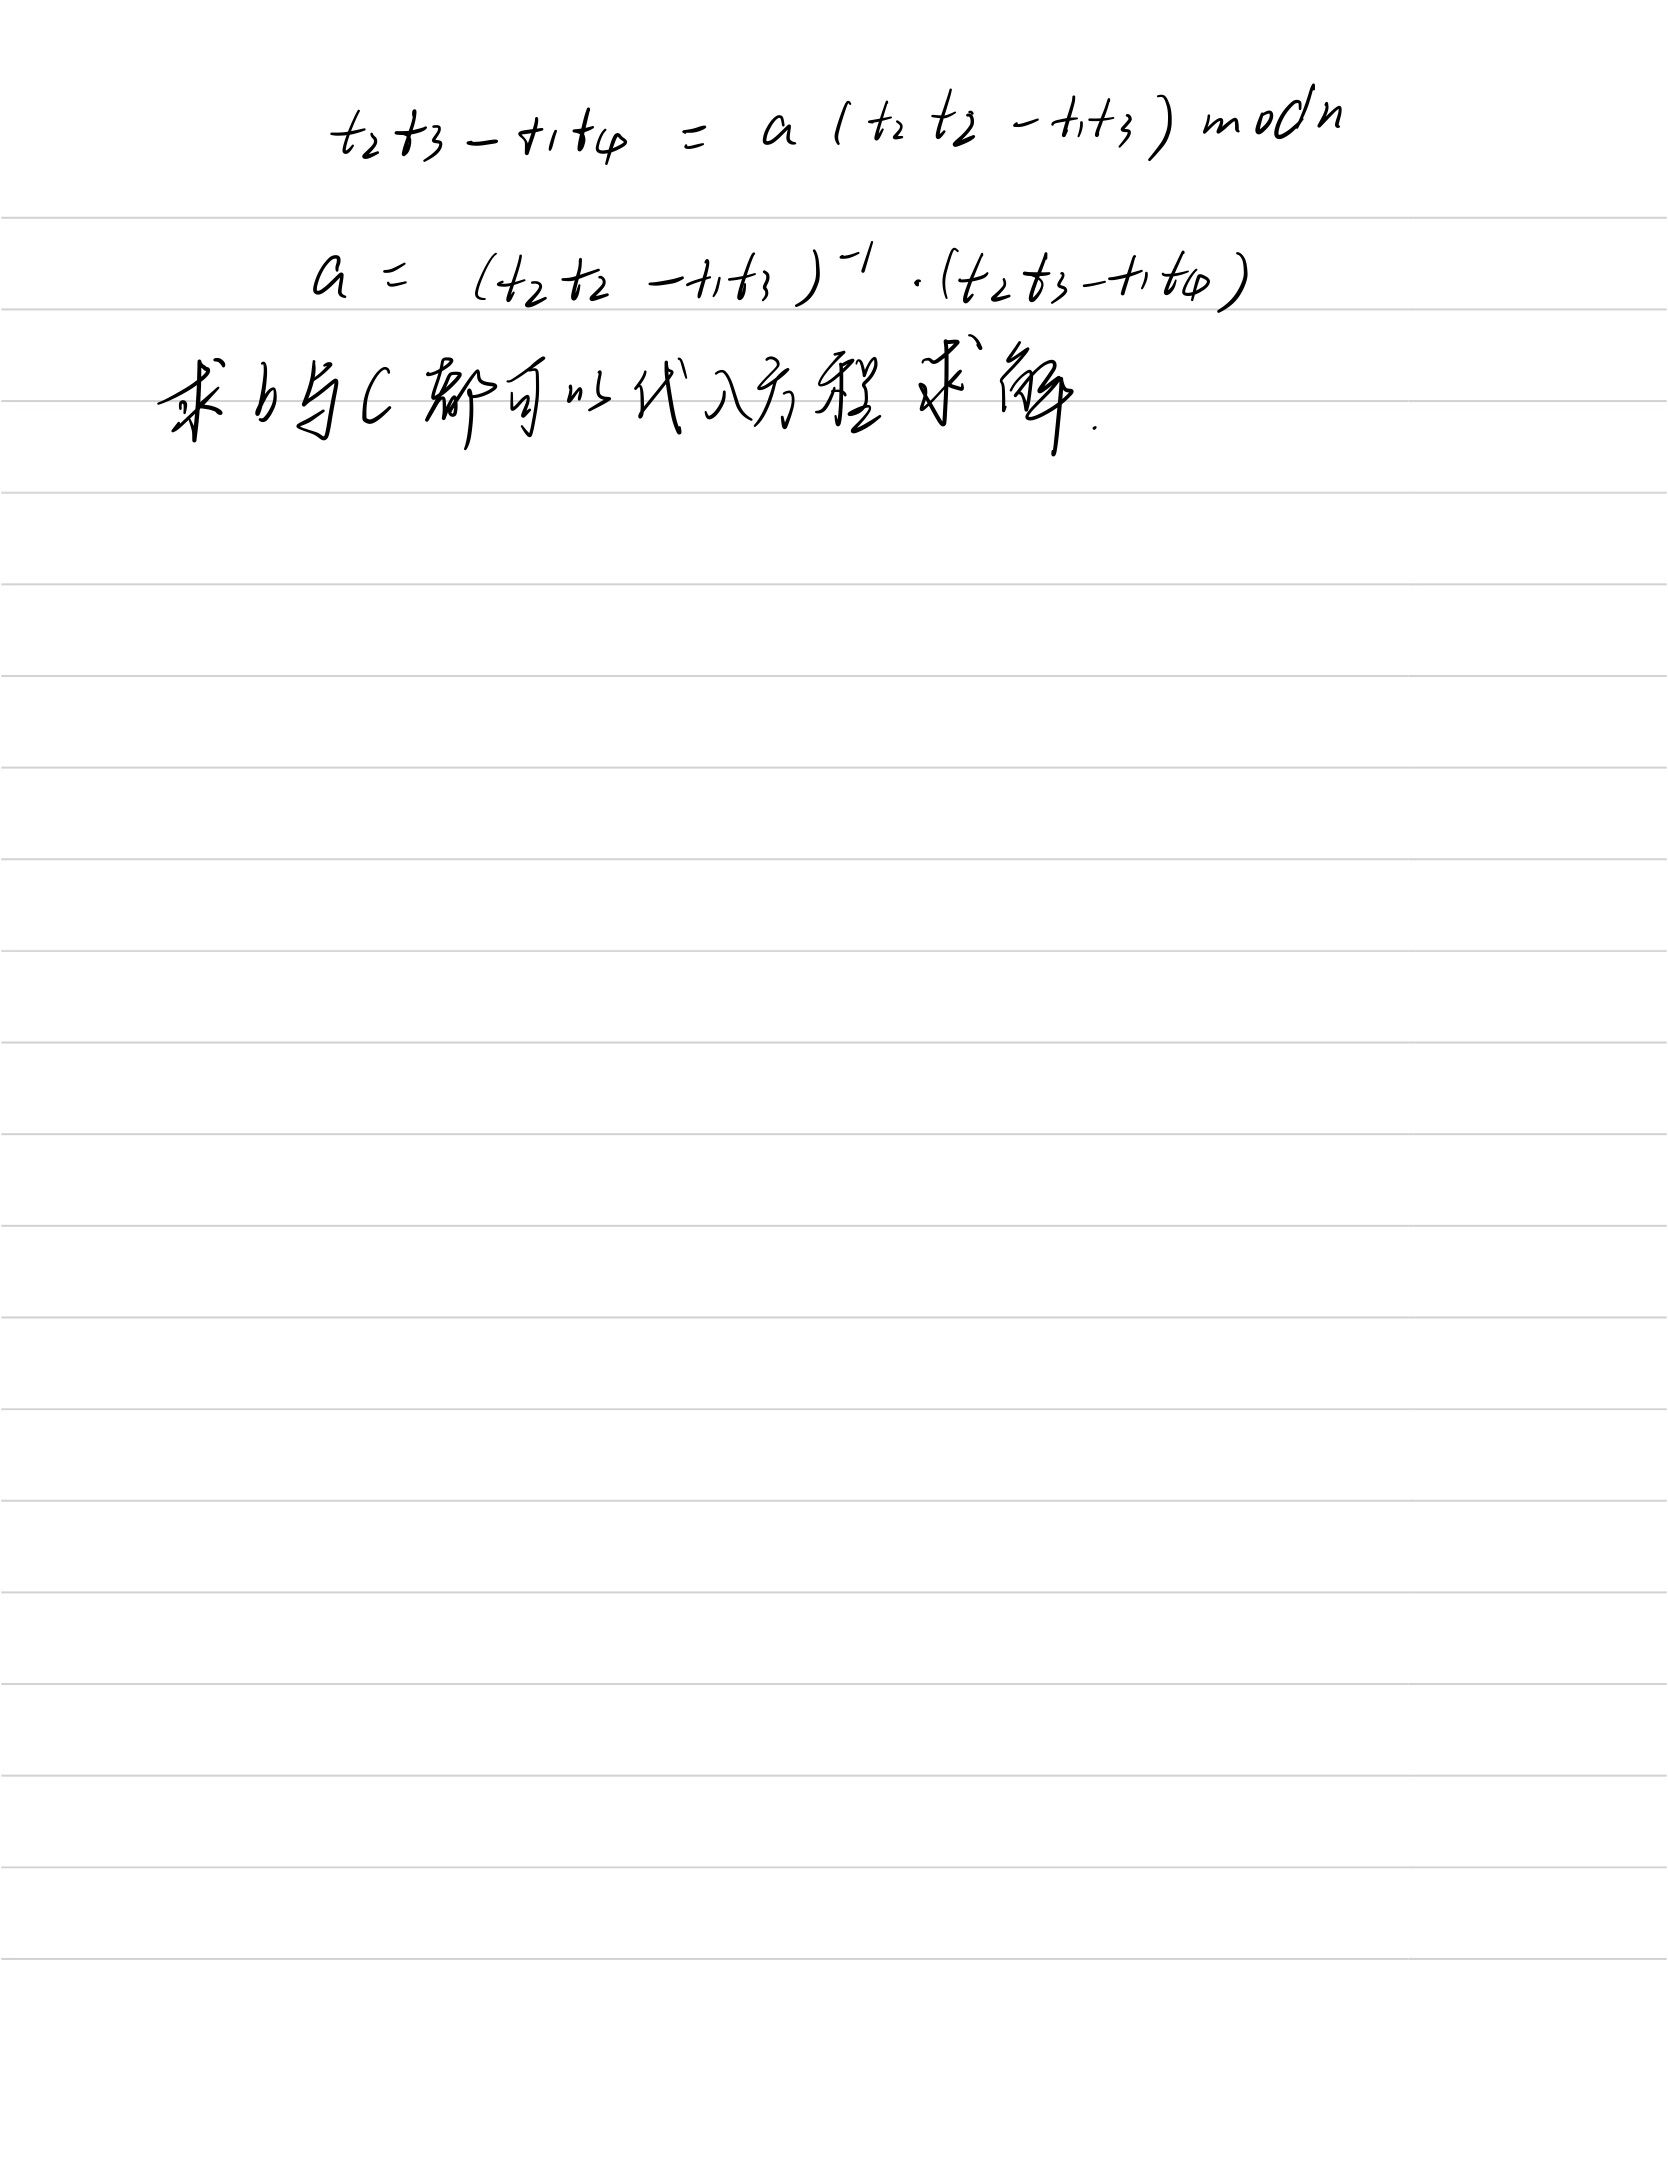 t₂t₃ - t₁t₄ = a (t₂t₂ - t₁t₃) mod n
a = (t₂t₂ - t₁t₃)⁻¹ · (t₂t₃ - t₁t₄)
求b与c都可以代入方程求解.